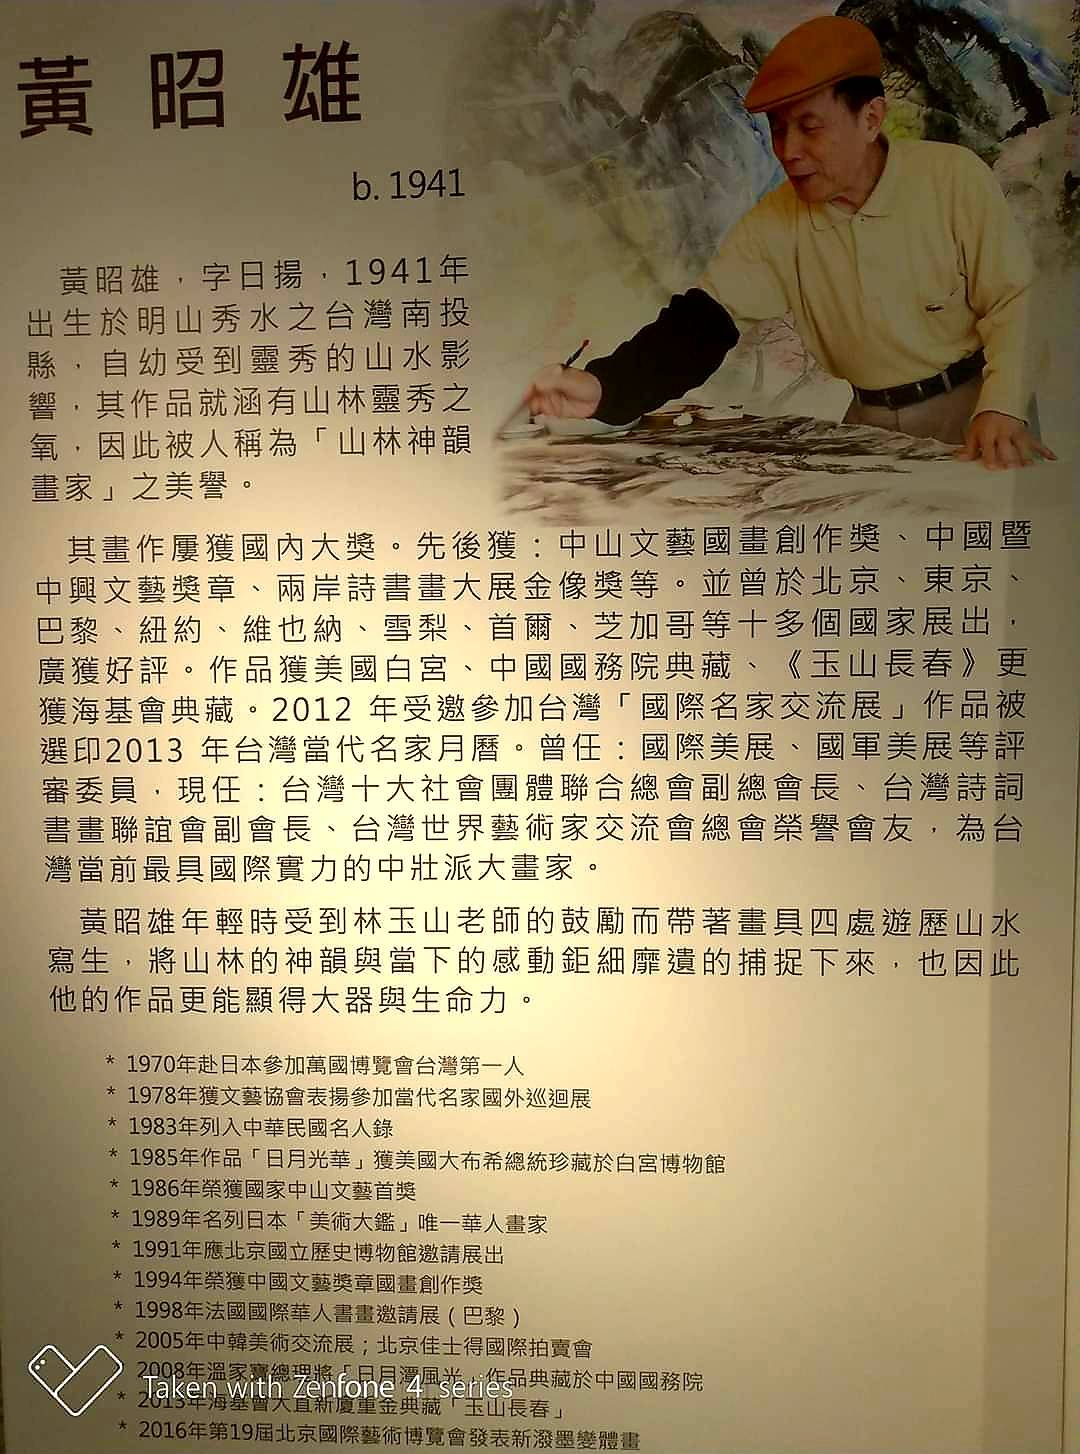 黃昭雄
b. 1941
黃昭雄，字日揚，1941年
出生於明山秀水之台灣南投
縣，自幼受到靈秀的山水影
響，其作品就涵有山林靈秀之
氧，因此被人稱為「山林神韻
畫家」之美譽。
其畫作屢獲國內大獎。先後獲：中山文藝國畫創作獎、中國暨
中興文藝獎章、兩岸詩書畫大展金像獎等。並曾於北京、東京、
巴黎、紐約、維也納、雪梨、首爾、芝加哥等十多個國家展出，
廣獲好評。作品獲美國白宮、中國國務院典藏、《玉山長春》更
獲海基會典藏。2012 年受邀參加台灣「國際名家交流展」作品被
選印2013 年台灣當代名家月曆。曾任：國際美展、國軍美展等評
審委員，現任：台灣十大社會團體聯合總會副總會長、台灣詩詞
書畫聯誼會副會長、台灣世界藝術家交流會總會榮譽會友，為台
灣當前最具國際實力的中壯派大畫家。
黃昭雄年輕時受到林玉山老師的鼓勵而帶著畫具四處遊歷山水
寫生，將山林的神韻與當下的感動鉅細靡遺的捕捉下來，也因此
他的作品更能顯得大器與生命力。
* 1970年赴日本參加萬國博覽會台灣第一人
* 1978年獲文藝協會表揚參加當代名家國外巡迴展
* 1983年列入中華民國名人錄
* 1985年作品「日月光華」獲美國大布希總統珍藏於白宮博物館
* 1986年榮獲國家中山文藝首獎
* 1989年名列日本「美術大鑑」唯一華人畫家
* 1991年應北京國立歷史博物館邀請展出
* 1994年榮獲中國文藝獎章國畫創作獎
* 1998年法國國際華人書畫邀請展（巴黎）
* 2005年中韓美術交流展；北京佳士得國際拍賣會
2008年溫家寶總理將「日月潭風光」作品典藏於中國國務院
Taken with Zenfone 4 series
* 2013年海基會大直新廈重金典藏「玉山長春」
* 2016年第19屆北京國際藝術博覽會發表新潑墨變體畫